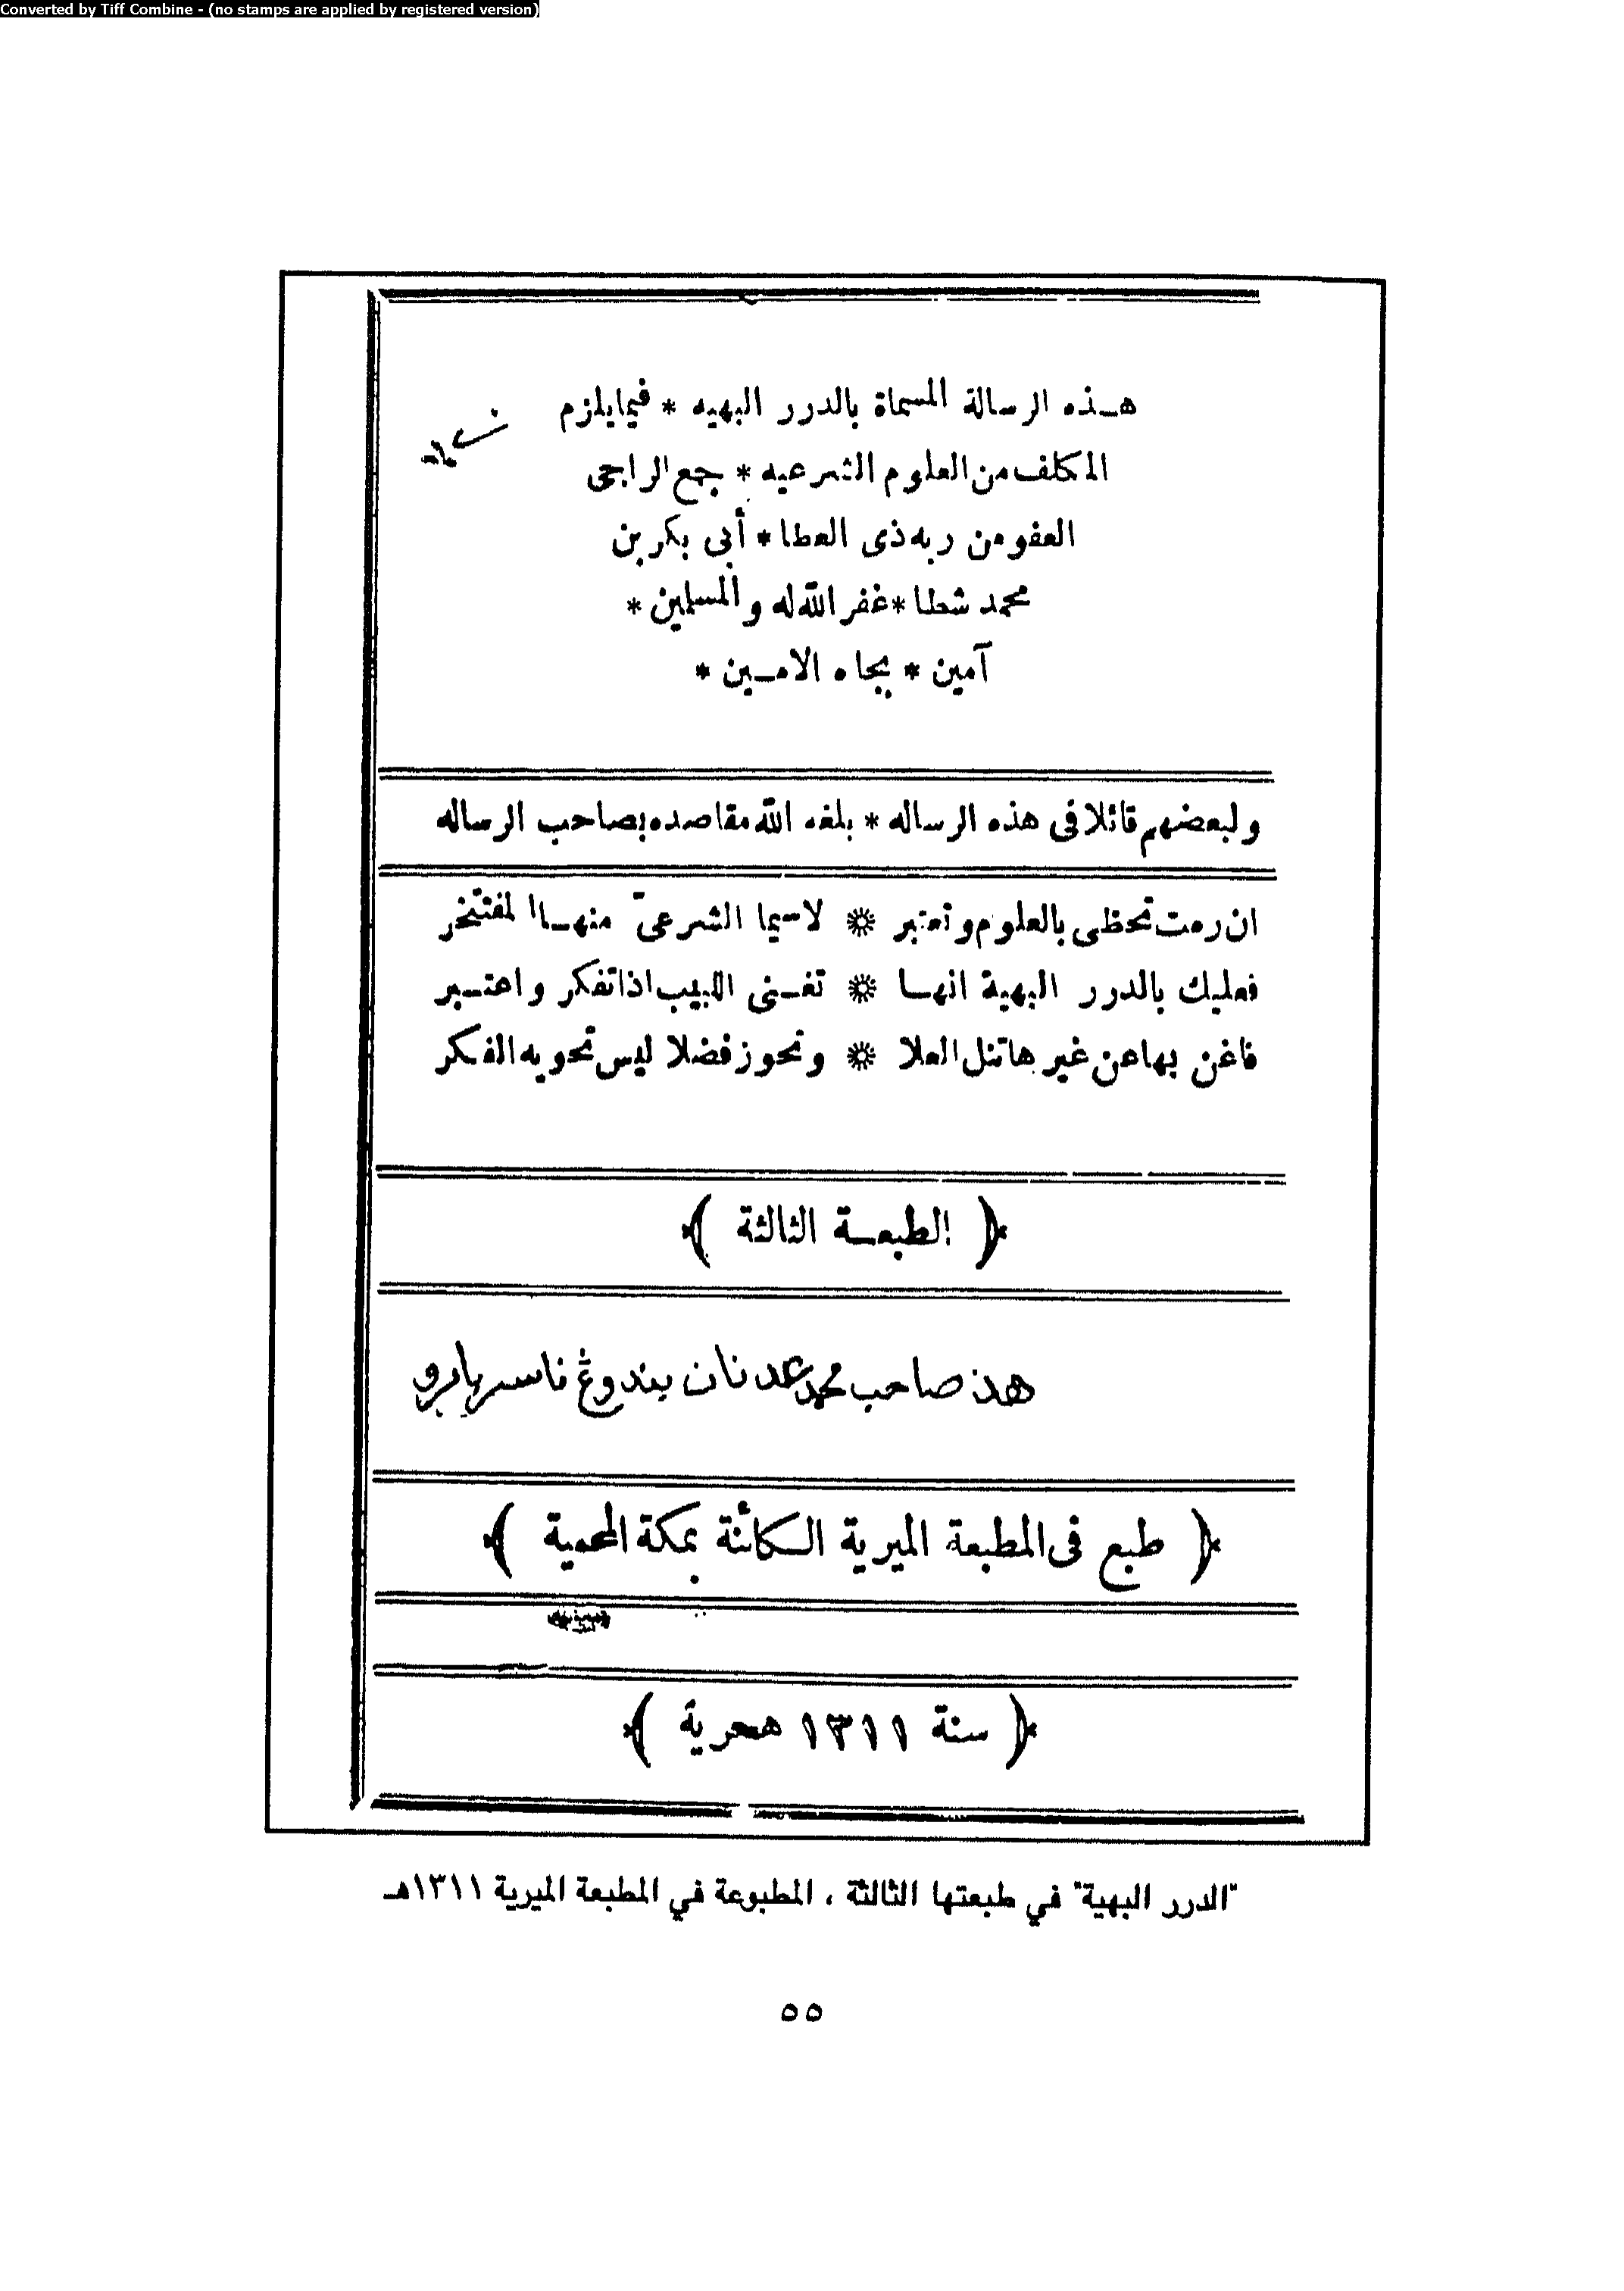 Converted by Tiff Combine - (no stamps are applied by registered version)
هـذه الرسالة المسماة بالدرر البهيه * فيما يلزم
المكلف من العلوم الشرعيه * جمع الراجى
العفو من ربه ذى العطا * أبى بكر بن
محمد شطا * غفر الله له والمسلمين *
آمين * بجاه الامـين *
ولبعضهم قائلا فى هذه الرساله * بلغه الله مقاصده بصاحب الرساله
ان رمت تحظى بالعلوم وتعتبر ❊ لاسيما الشرعىّ منهـا المفتخر
فعليك بالدرر البهية انهـا ❊ تغـنى اللبيب اذا تفكر واعتـبر
فاغن بها عن غيرها تنل العلا ❊ وتحوز فضلا ليس تحويه الفـكر
﴿ الطبعـة الثالثة ﴾
هذ صاحب محمد عدنان
﴿ طبع فى المطبعة الميرية الـكائنة بمكة المحمية ﴾
﴿ سنة ١٣١١ هجرية ﴾
"الدرر البهية" في طبعتها الثالثة ، المطبوعة في المطبعة الميرية ١٣١١هـ
٥٥